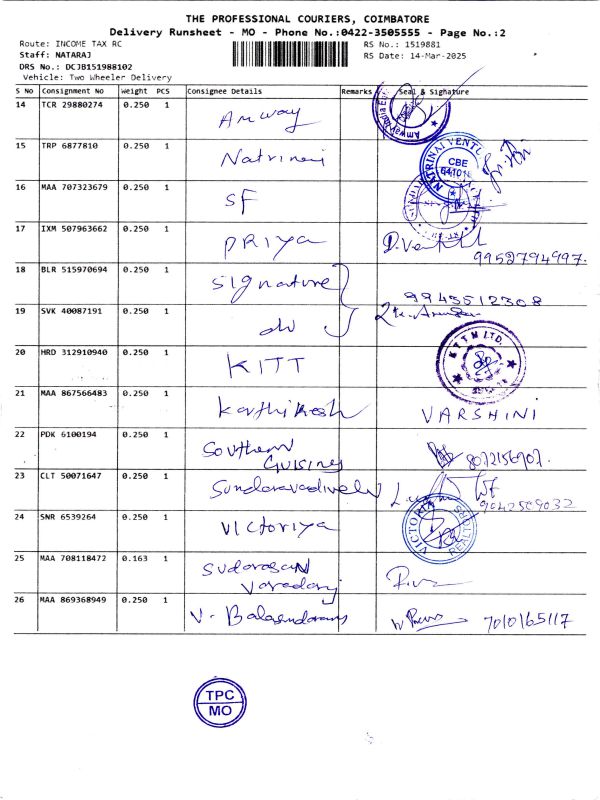 THE PROFESSIONAL COURIERS, COIMBATORE
Delivery Runsheet - MO - Phone No.:0422-3505555 - Page No.:2
Route: INCOME TAX RC
RS No.: 1519881
Staff: NATARAJ
RS Date: 14-Mar-2025
DRS No.: DCJB151988102
Vehicle: Two Wheeler Delivery
S No Consignment No Weight PCS Consignee Details Remarks Seal & Signature
14 TCR 29880274 0.250 1 Amway
15 TRP 6877810 0.250 1 Natrinai NATRINAI VENTU CBE
16 MAA 707323679 0.250 1 SF
17 IXM 507963662 0.250 1 PRIYA D. Venkat
9952794997.
18 BLR 515970694 0.250 1 Signature
19 SVK 40087191 0.250 1 do
20 HRD 312910940 0.250 1 KITT
21 MAA 867566483 0.250 1 Karthikesh VARSHINI
22 PDK 6100194 0.250 1 Southern
Cuising
23 CLT 50071647 0.250 1 Sundaravadivelu
24 SNR 6539264 0.250 1 Victoriya VICTORIA REALTORS
25 MAA 708118472 0.163 1 Sudarasan
Varadaraj
26 MAA 869368949 0.250 1 V. 7010165117
TPC
MO